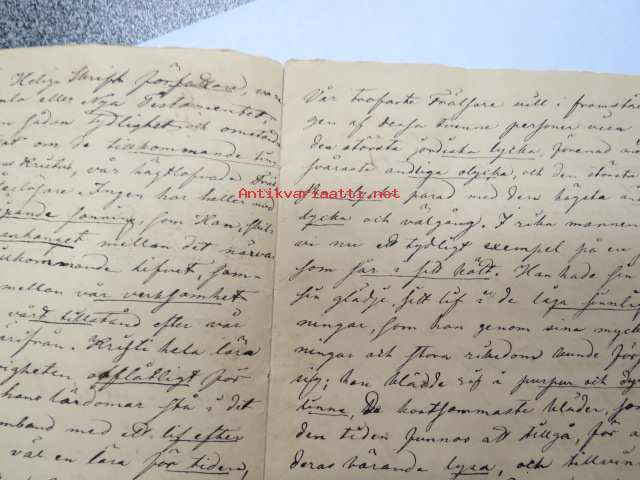 Helige Skrift författare, vare
eller Nya Testamentet,
en sådan tydlighet och omständ
om de tillkommande tin
Kristus, vår högtlofvade Fräl
Ingen har heller med
sanning, som Han, fram
mellan det närva
tillkommande lifvet, sam
mellan vår verksamhet
vårt tillstånd efter vår
härifrån. Kristi hela lära
oaflåtligt för
hans lärdomar stå i det
samband med ett lif efter
väl en lära för tiden,
Vår trofaste Frälsare vill i framstäl
gen af dessa tvenne personer visa
den största jordiska lycka, förenad med
svåraste andliga olycka, och den största
parad med den högsta and
lycka och välgång. I rika mannen
vi nu ett tydligt exempel på en
som sår i sitt kött. Han hade sin
sin glädje, sitt lif i de låga sinnlig
ningar, som han genom sina myck
ningar och stora rikedom kunde för
sig; han klädde sig i purpur och dyr
linne, De kostsammaste kläder, som
den tiden funnos att tillgå, för a
deras bärande lysa, och tillvin
Antikvariaatti.net